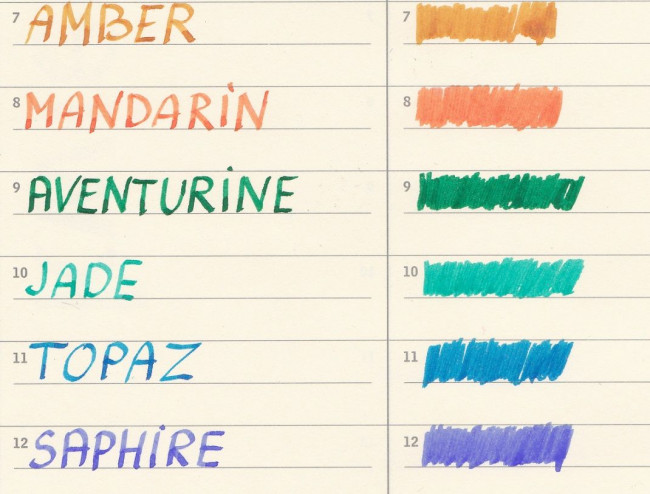 7 AMBER 7
8 MANDARIN 8
9 AVENTURINE 9
10 JADE 10
11 TOPAZ 11
12 SAPHIRE 12